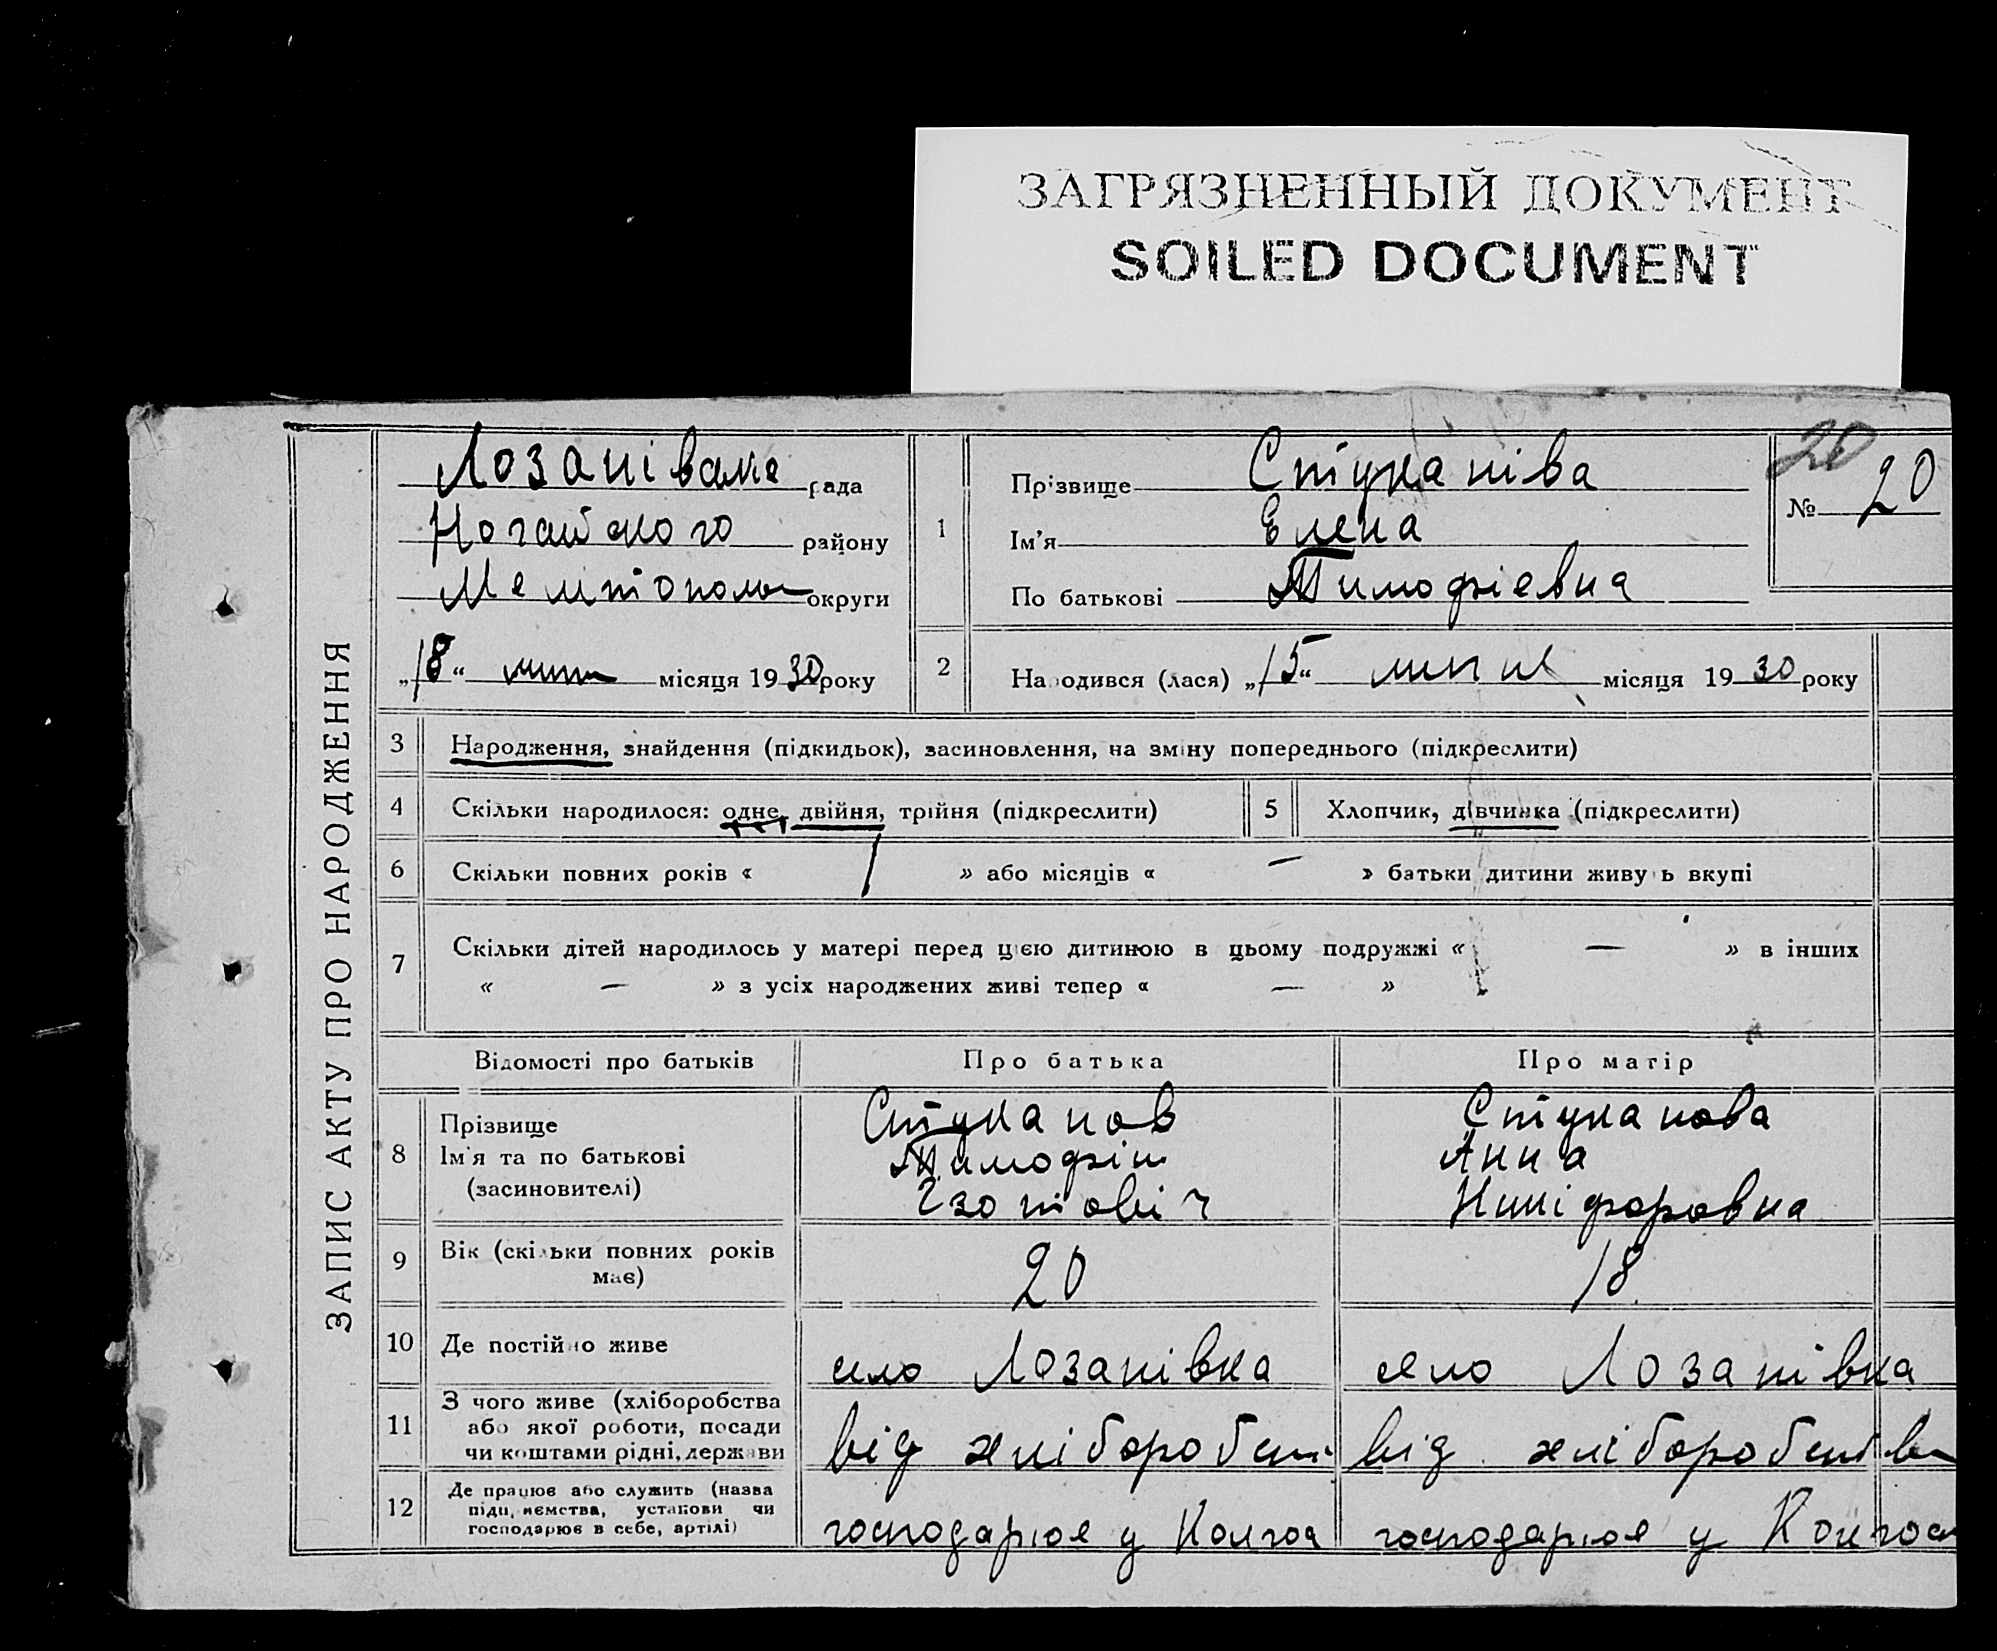 ЗАГРЯЗНЕННЫЙ ДОКУМЕНТ
SOILED DOCUMENT
ЗАПИС АКТУ ПРО НАРОДЖЕННЯ
рада
Ногайского району
округи
„18“ місяця 1930 року
20
№ 20
1
Прізвище Стуканіва
Ім'я Елена
По батькові Тимофіевна
2
Народився (лася) „15“ липня місяця 1930 року
3 Народження, знайдення (підкидьок), засиновлення, на зміну попереднього (підкреслити)
4 Скільки народилося: одне, двійня, трійня (підкреслити)
5 Хлопчик, дівчинка (підкреслити)
6 Скільки повних років « 1 » або місяців « — » батьки дитини живуть вкупі
7 Скільки дітей народилось у матері перед цією дитиною в цьому подружжі « — » в інших
« — » з усіх народжених живі тепер « — »
Відомості про батьків Про батька Про матір
8 Прізвище
Ім'я та по батькові
(засиновителі)
Стуканов
Тимофій
Ізотовіч
Стуканова
Анна
Никіфоровна
9 Вік (скільки повних років
має)
20 18
10 Де постійно живе село Лозанівка село Лозанівка
11 З чого живе (хліборобства
або якої роботи, посади
чи коштами рідні, держави
від хліборобст від хліборобств
12 Де працює або служить (назва
підприємства, установи чи
господарює в себе, артілі)
господарює у Колгос господарює у Колгос